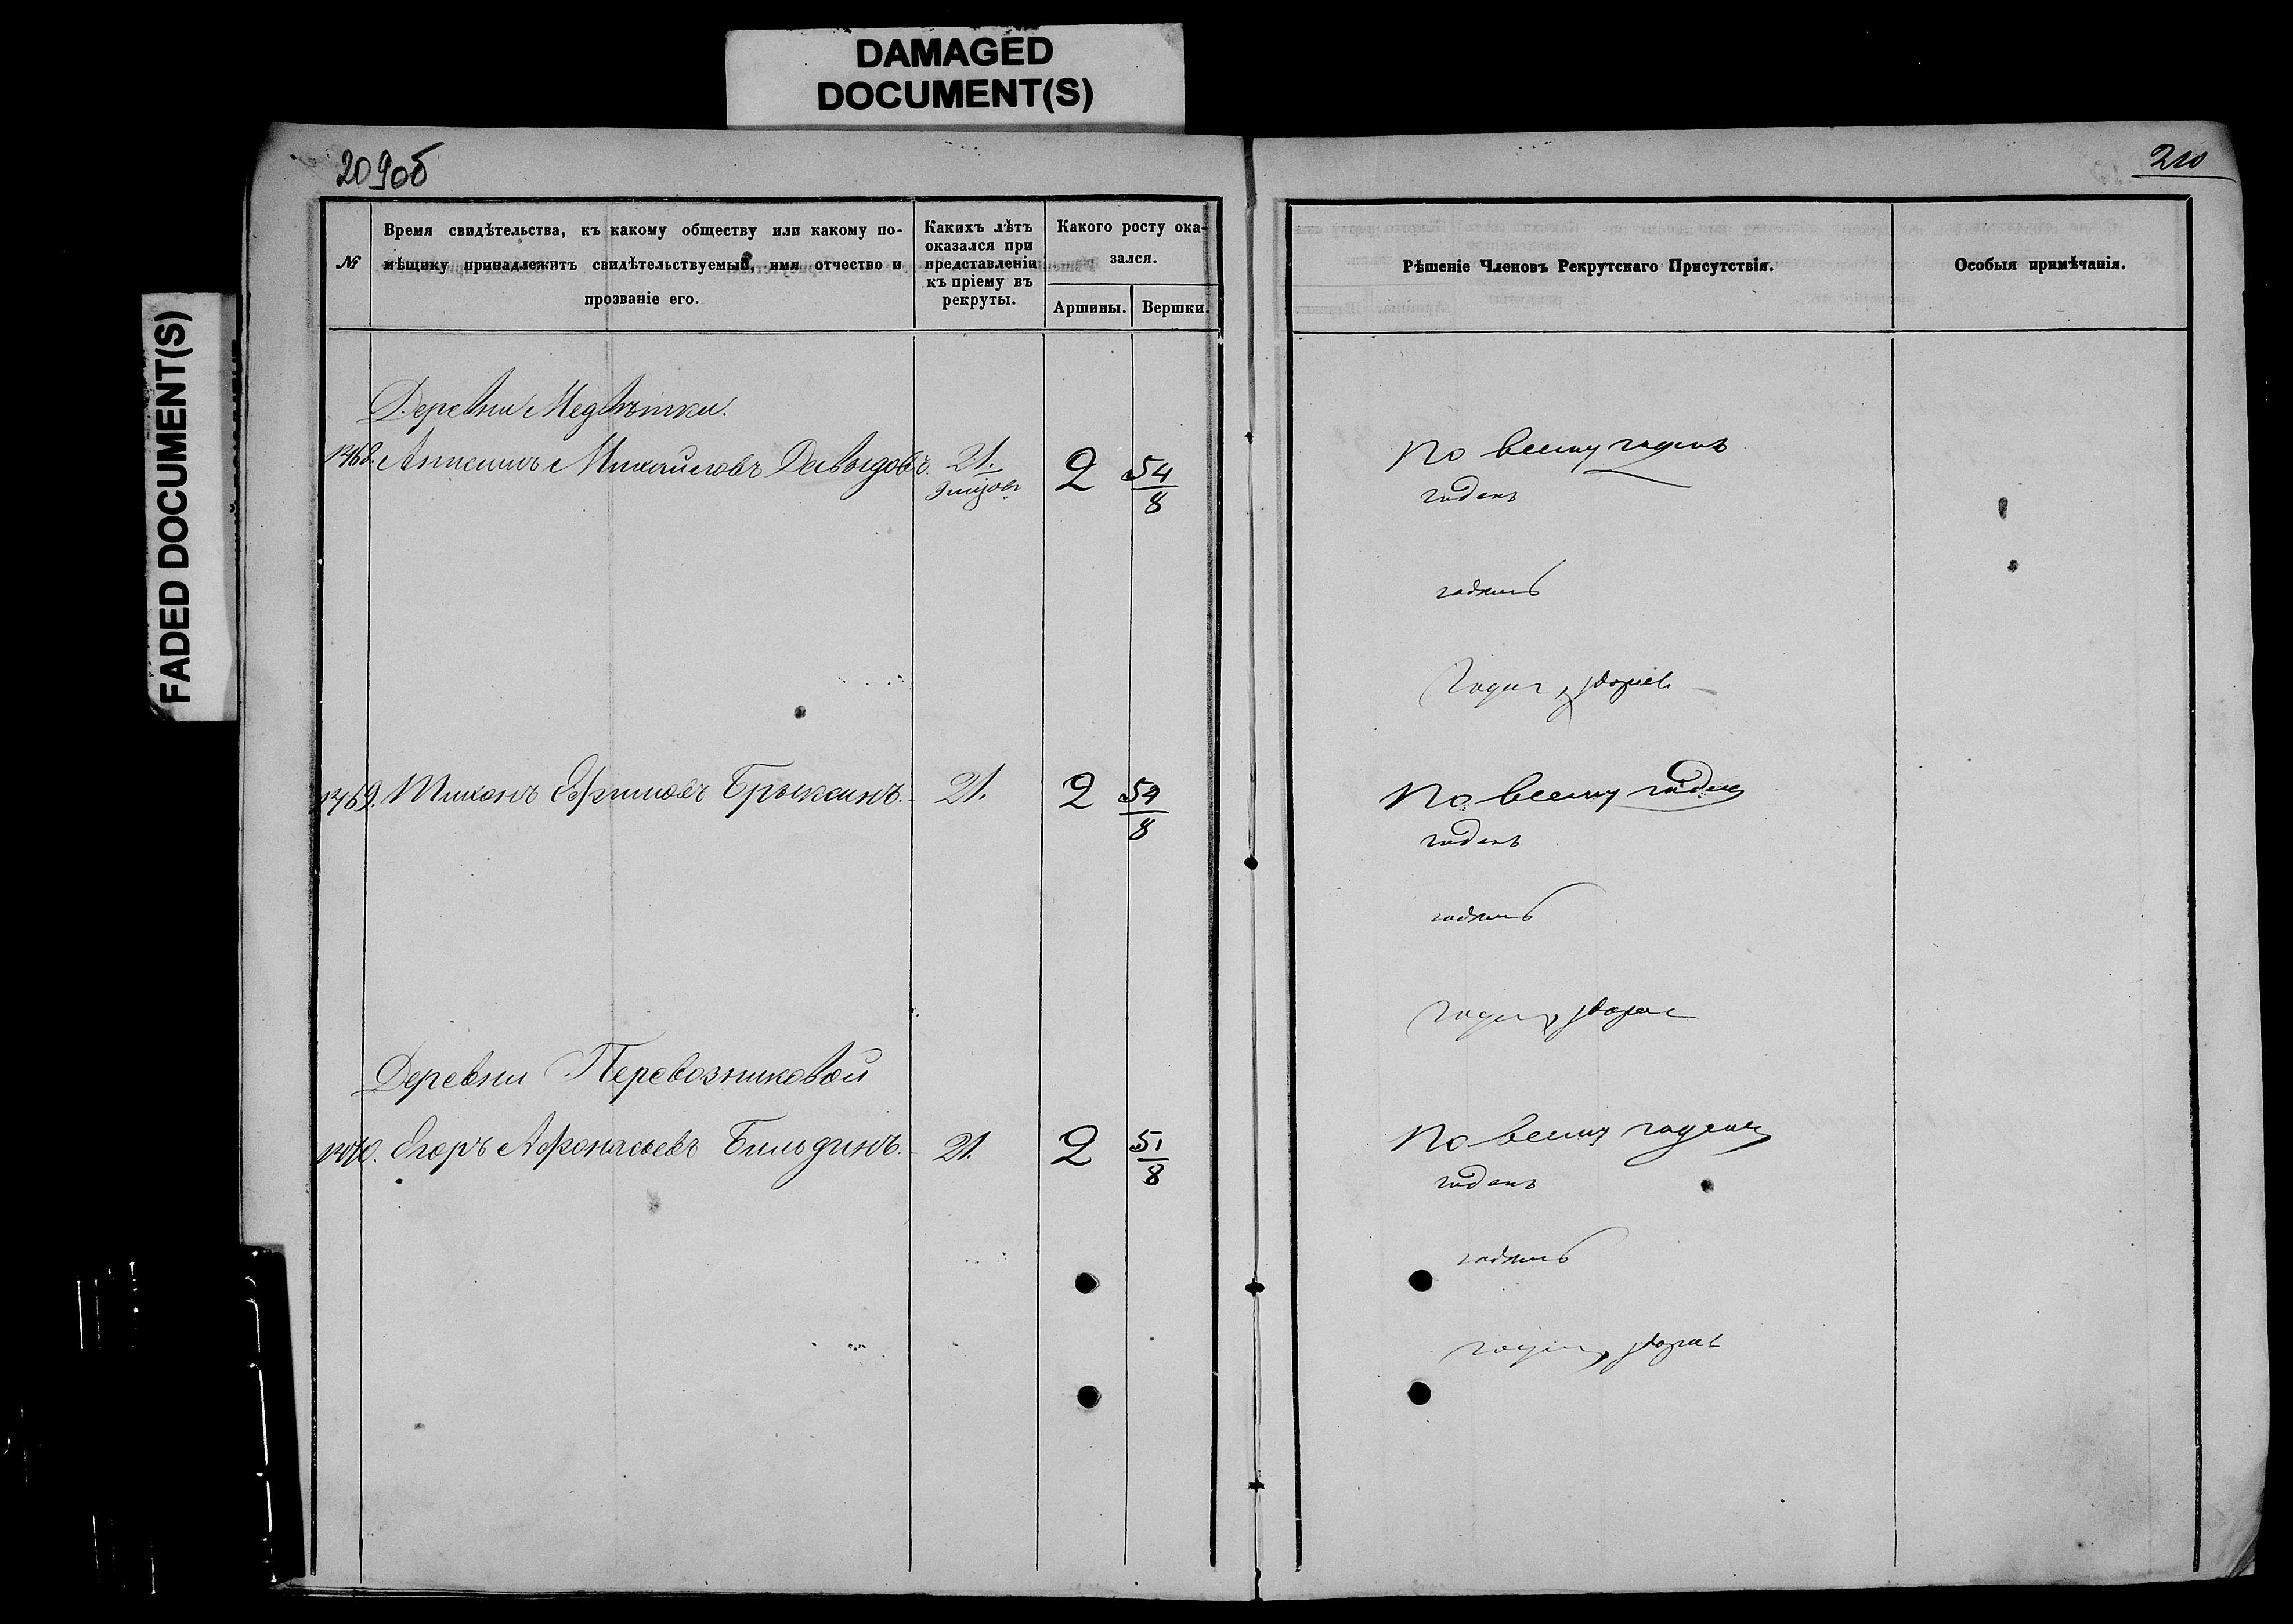 DAMAGED
DOCUMENT(S)
FADED DOCUMENT(S)
209об
№
Время свидѣтельства, къ какому обществу или какому по-
мѣщику принадлежитъ свидѣтельствуемый, имя отчество и
прозваніе его.
Какихъ лѣтъ
оказался при
представленіи
къ пріему въ
рекруты.
Какого росту ока-
зался.
Аршины.
Вершки.
Деревни Медвѣтки.
1468. Анисимъ Михайловъ Давыдовъ. 21. 2 5 4/8
Деревни Перевозниковой
1469. Тихонъ Ефимовъ Брыксинъ. 21. 2 5 4/8
1470. Егоръ Афонасьевъ Бильдинъ. 21. 2 5 1/8
210
Рѣшеніе Членовъ Рекрутскаго Присутствія.
Особыя примѣчанія.
По всему годенъ
годенъ
годенъ
Годен, здоров
По всему годен
годенъ
годенъ
Годен, здоров
По всему годенъ
годенъ
годенъ
годен, здоров